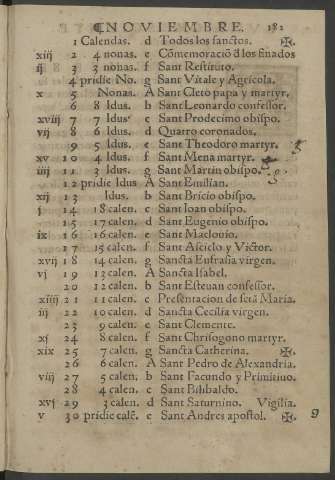 ¶NOVIEMBRE. 182
1 Calendas. d Todos los sanctos. ✠.
xiij 2 4 nonas e Cõmemoraciõ d̃ los finados
ij 3 3 nonas. f Sant Restituto.
4 pridie No. g Sant Vitale y Agricola.
x 5 Nonas. A Sant Cleto papa y martyr.
6 8 Idus. b Sant Leonardo confessor.
xviij 7 7 Idus. c Sant Prodecimo obispo.
vij 8 6 Idus. d Quatro coronados.
9 5 Idus. e Sant Theodoro martyr.
xv 10 4 Idus. f Sant Mena martyr.
iiij 11 3 Idus. g Sant Martin obispo.
12 pridie Idus A Sant Emilian.
xij 13 Idus. b Sant Bricio obispo.
j 14 18 calen. c Sant Ioan obispo.
15 17 calen. d Sant Eugenio obispo.
ix 16 16 calen. e Sant Maclouio.
17 15 calen. f Sant Asciclo y Victor.
xvij 18 14 calen. g Sancta Eufrasia virgen.
vj 19 13 calen. A Sancta Isabel.
20 12 calen. b Sant Esteuan confessor.
xiiij 21 11 calen. c Presentacion de sctã Maria.
iij 22 10 calen. d Sancta Cecilia virgen.
23 9 calen. e Sant Clemente.
xj 24 8 calen. f Sant Chrisogono martyr.
xix 25 7 calen. g Sancta Catherina. ✠.
26 6 calen. A Sant Pedro de Alexandria.
viij 27 5 calen. b Sant Facundo y Primitiuo.
28 4 calen. c Sant Bilibaldo.
xvj 29 3 calen. d Sant Saturnino. Vigilia.
v 30 pridie calẽ. e Sant Andres apostol. ✠.